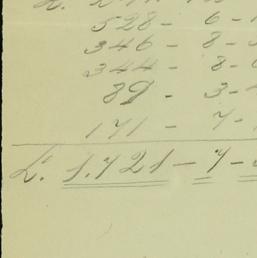 528 - 6 -
346 - 8 -
344 - 8 -
89 - 3 -
171 - 7 -
£. 1.721 - 7 -